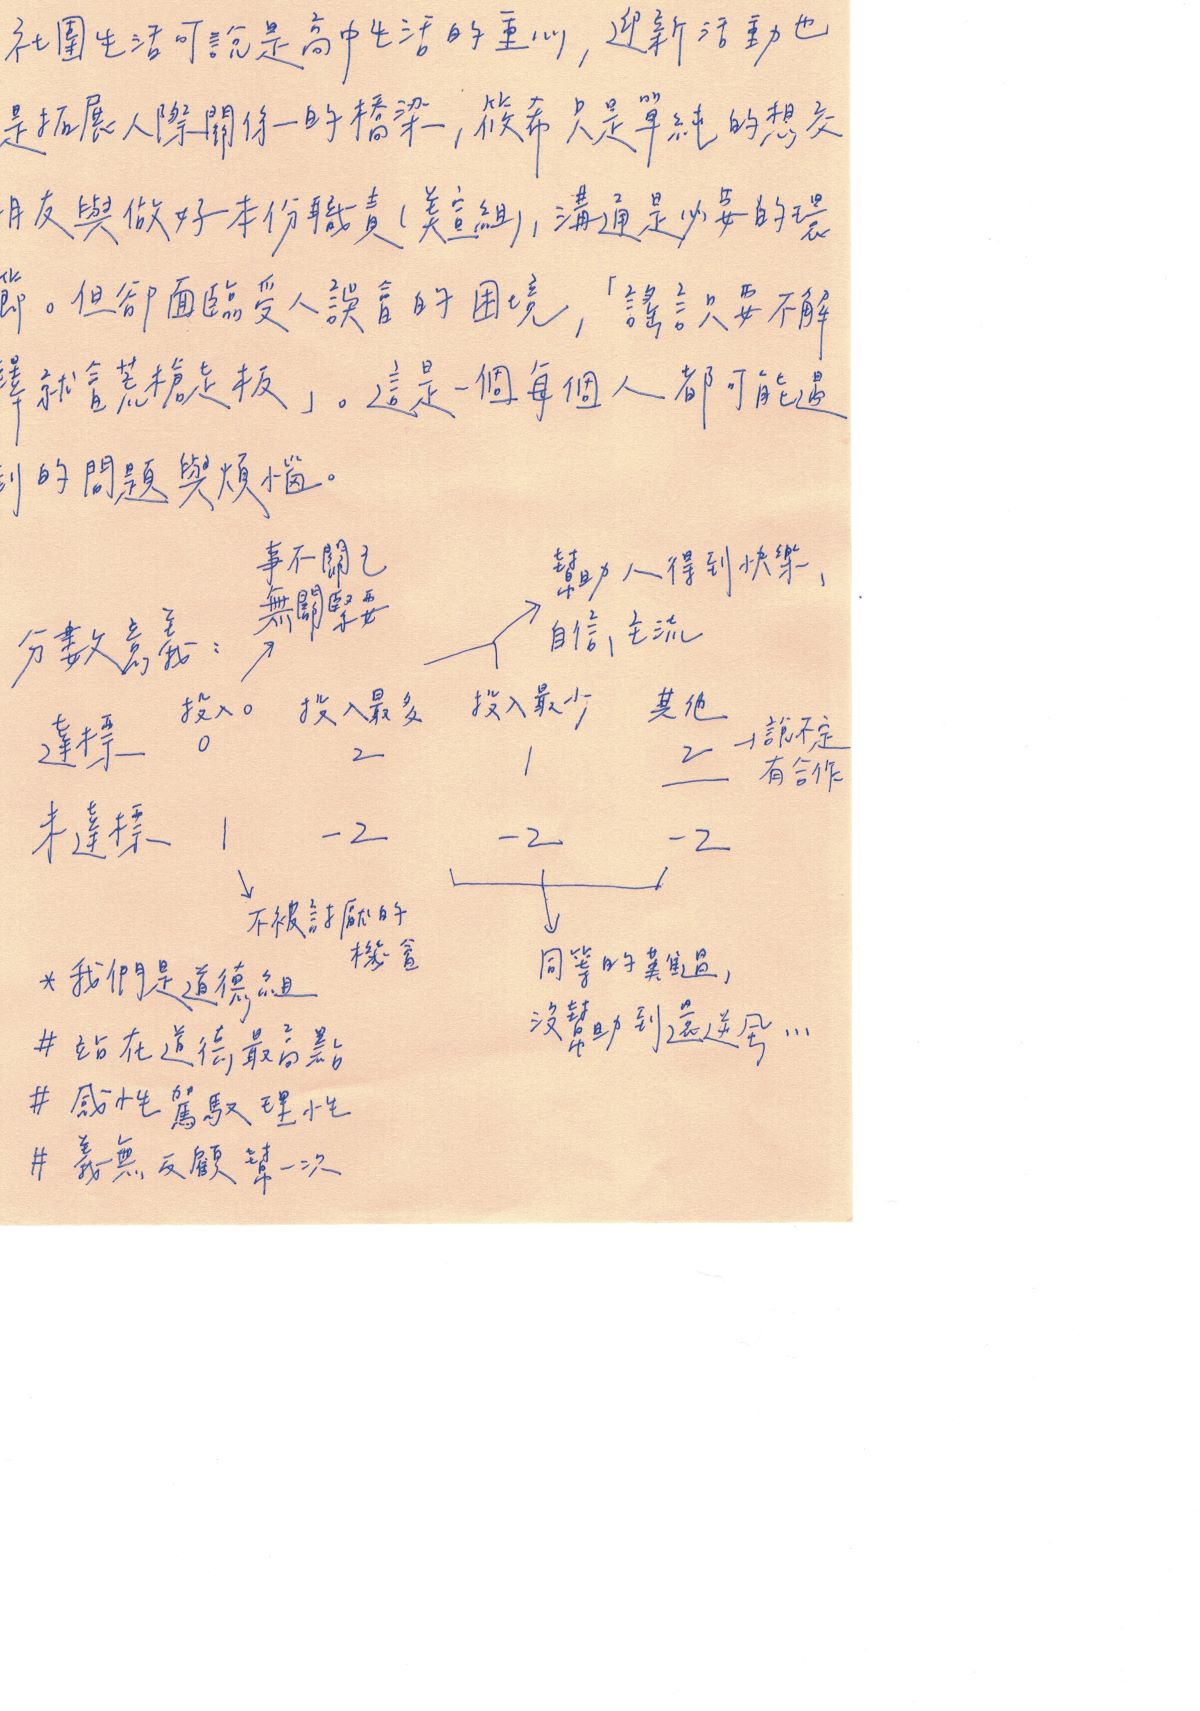 社團生活可說是高中生活的重心,迎新活動也
是拓展人際關係的橋梁,筱希只是單純的想交
朋友與做好本份職責(美宣組),溝通是必要的環
節。但卻面臨受人誤會的困境,「謠言只要不解
釋就會荒槍走板」。這是一個每個人都可能遇
到的問題與煩惱。
事不關己
無關緊要
幫助人得到快樂、
自信、主流
分數意義:
投入0 投入最多 投入最少 其他
達標 0 2 1 2 →說不定
有合作
未達標 1 -2 -2 -2
不被討厭的
機會
同等的難過,
沒幫助到還逆風...
*我們是道德組
# 站在道德最高點
# 感性駕馭理性
# 義無反顧幫一次